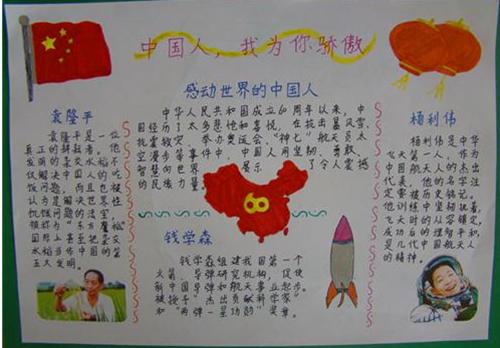 中国人，我为你骄傲
感动世界的中国人
中华人民共和国成立60周年以来，中
国经历了太多悲怆和喜悦，在抗击暴风雪、
抗震救灾、举办奥运会、“神七”航天员太
空漫步等事件中，中国人用坚韧、勇敢、
智慧向世界展示了令人震撼
的民族力量。
袁隆平
袁隆平是一位
真正的耕耘者。他
发明的杂交水稻不
仅解决中国人的吃
饭问题，而且也被
认为是解决世界性
饥饿问题的法宝，
被称为“东方魔稻”
国际上甚至把杂交
水稻当作中国的第
五大发明。
钱学森
钱学森组建我国第一个
火箭、导弹研究机构，促使
新中国导弹和航天事业起步。
被授予“杰出贡献科学家”
和“两弹一星功勋”奖章。
杨利伟
杨利伟是中华
飞天第一人，作为
中国航天人的杰出
代表，他的名字注
定要被历史铭记。
他训练中坚韧执着，
飞天时的从容镇定，
成功后的理智平和，
是几代中国航天人
的精神。
60